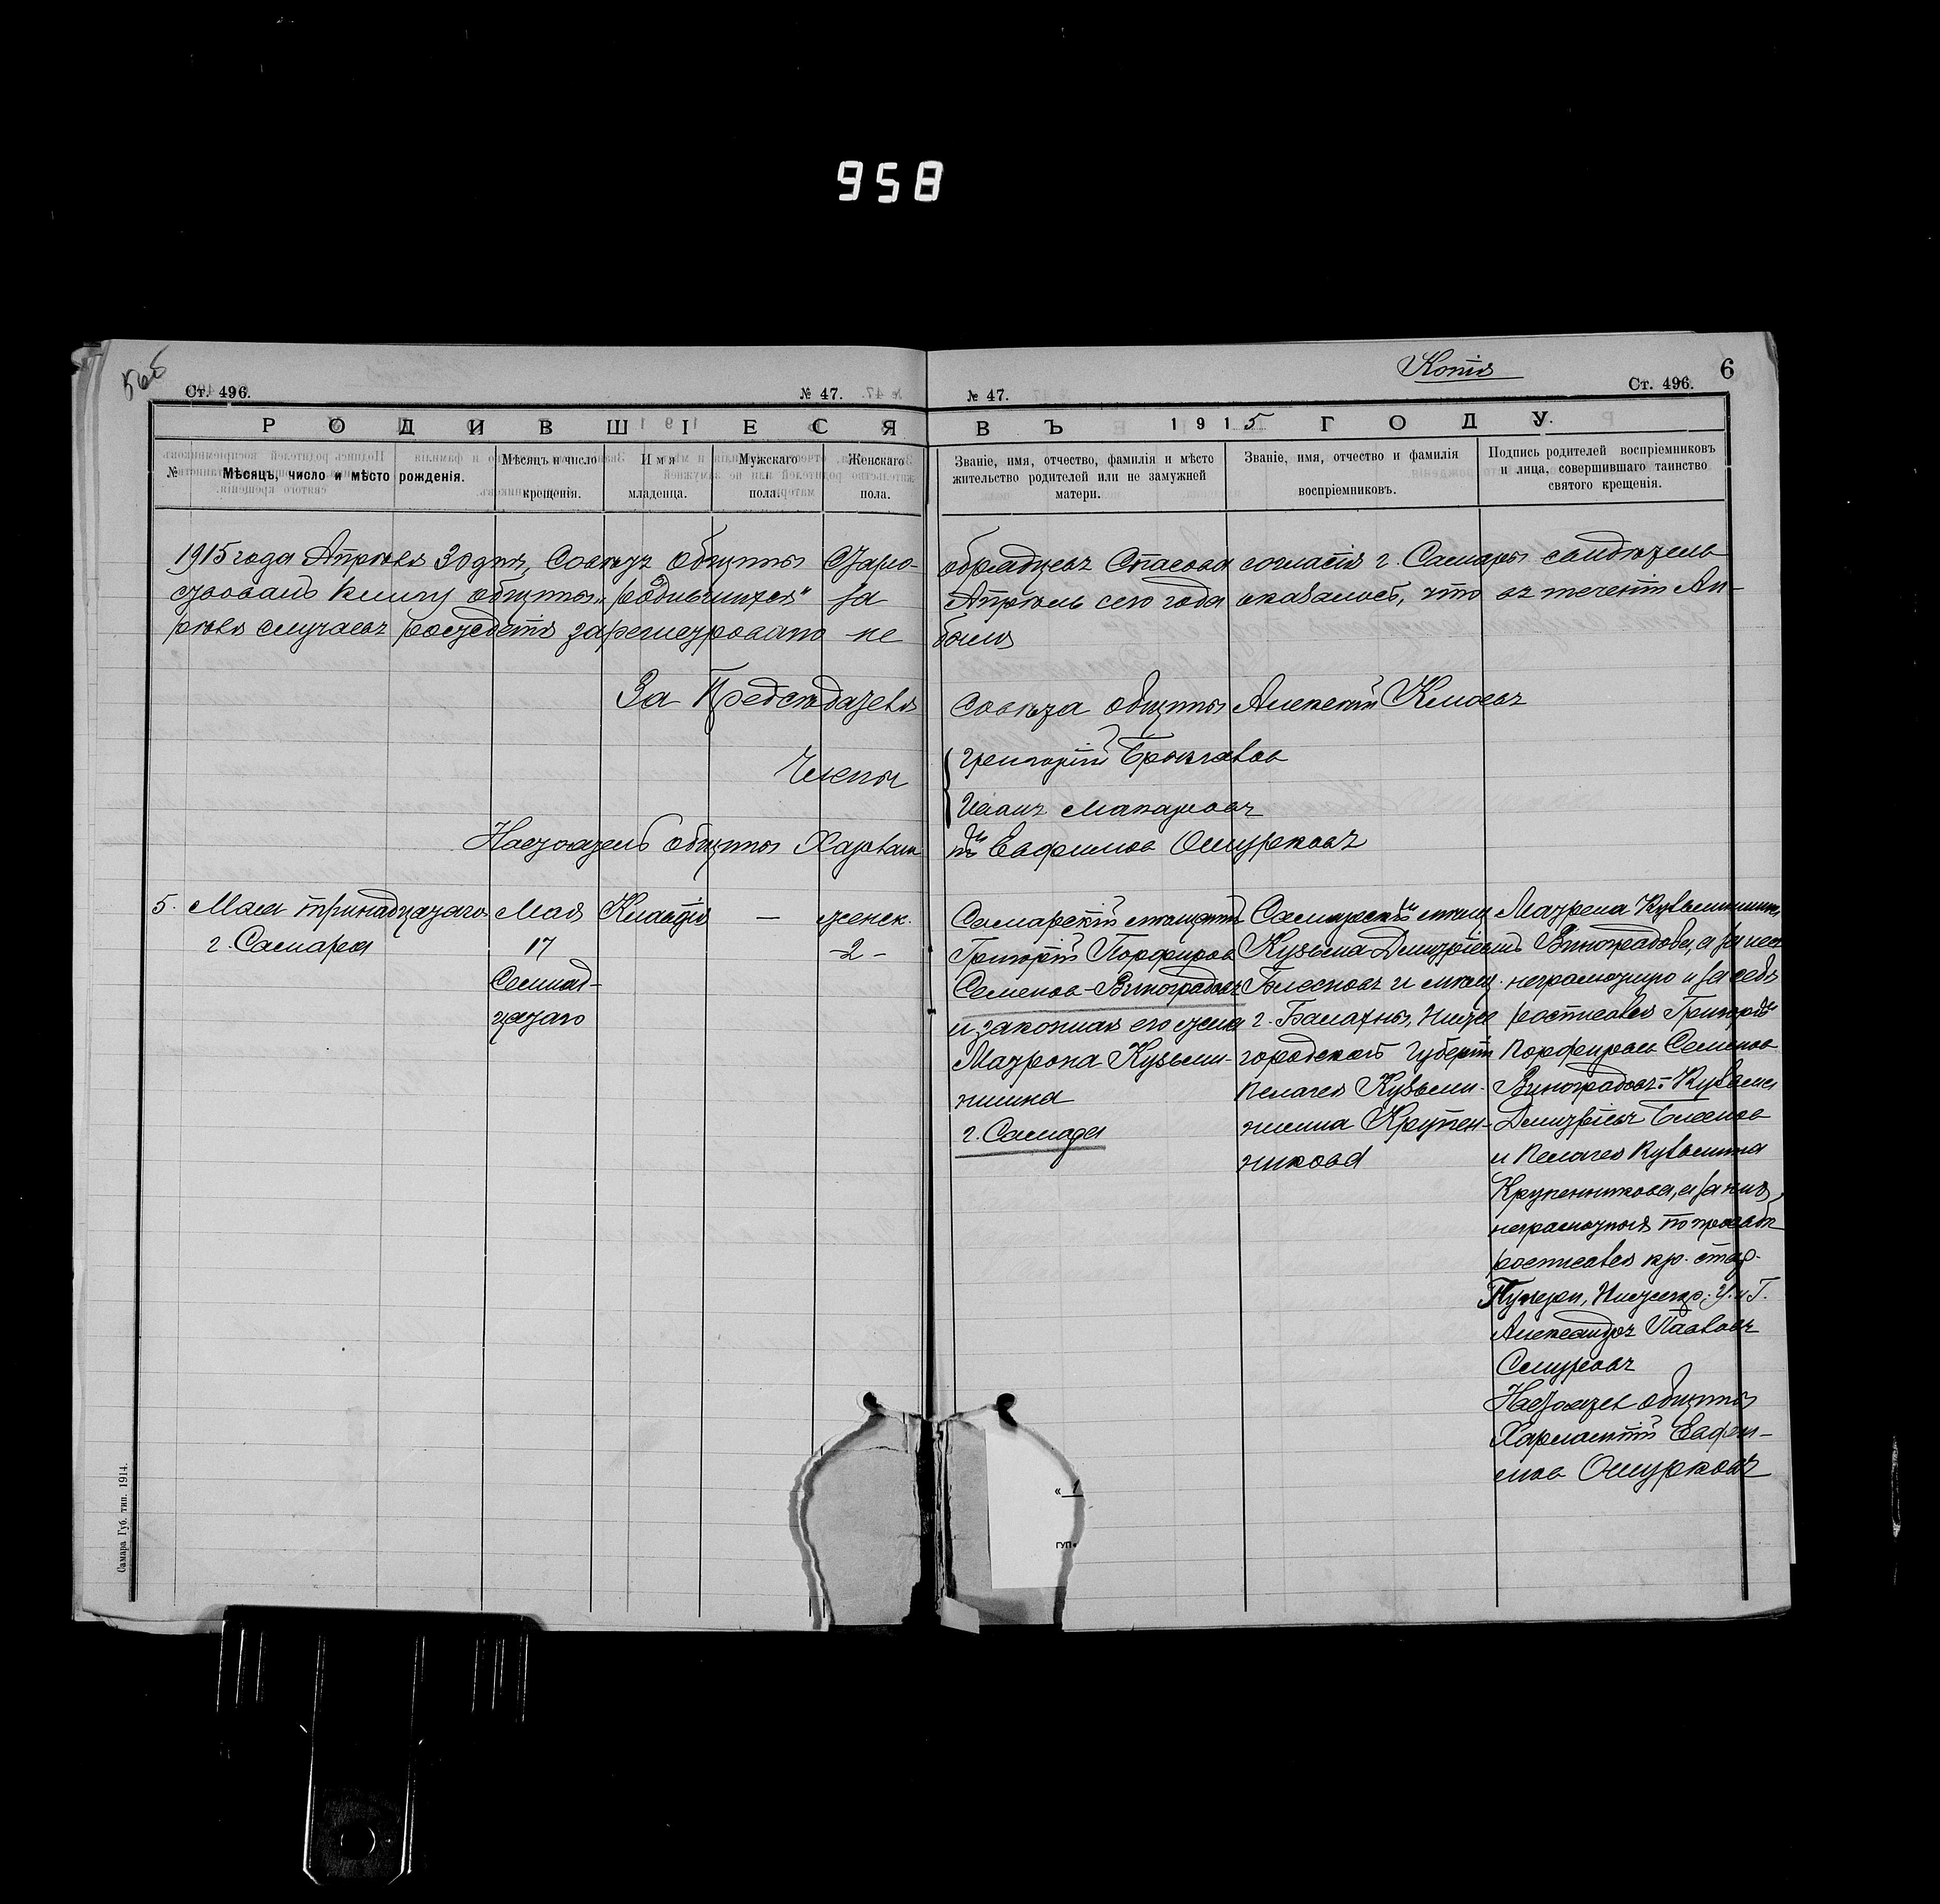 958
Копія
6
Ст. 496. № 47.
№ 47. Ст. 496.
РОДИВШІЕСЯ
ВЪ 1915 ГОДУ.
№
Мѣсяцъ, число и мѣсто рожденія.
Мѣсяцъ и число крещенія.
Имя младенца.
Мужскаго пола.
Женскаго пола.
Званіе, имя, отчество, фамилія и мѣсто жительство родителей или не замужней матери.
Званіе, имя, отчество и фамилія воспріемниковъ.
Подпись родителей воспріемниковъ и лица, совершившаго таинство святого крещенія.
1915 года Апрѣля 30 дня, Совѣтъ общины Старообрядцевъ Спасова согласія г. Самары свидѣтель-
ствовалъ книгу общины „родившихся" за Апрѣль сего года оказалось, что въ теченіи Ап-
рѣля случаевъ рожденія зарегистровано не было
За Предсѣдателя Совѣта общины Алексѣй Клюевъ
Члены
Григорій
Иванъ Макаровъ
Наставникъ общины Харлампій Евфимовъ Ошурковъ
5.
Мая тринадцатаго
г. Самара
Мая
17
Семнад-
цатаго
Клавдія
—
женск.
-2-
Самарскій мѣщанинъ
Григорій Порфировъ
Семеновъ-Виноградовъ
и законная его жена
Матрона Кузьми-
нишна
г. Самара
Самарскій мѣщ.
Кузьма Дмитріевичъ
и мѣщ.
г. Балахны, Ниже
городской губерніи
Пелагея Кузьми-
нишна Крупен-
никова
Матрена Кузьминишна
Виноградова, а за нея
неграмотную и за себя
росписался Григорій
Порфировъ Семеновъ
Виноградовъ. Кузьма
Дмитріевъ
и Пелагея Кузьмина
Крупенникова, а за нихъ
неграмотныхъ по просьбѣ
росписался кр.
Александръ Павловъ
Смирновъ
общины
Харлампій Евфи-
мовъ Ошурковъ
Самара Губ. тип. 1914.
«1
ГУП«